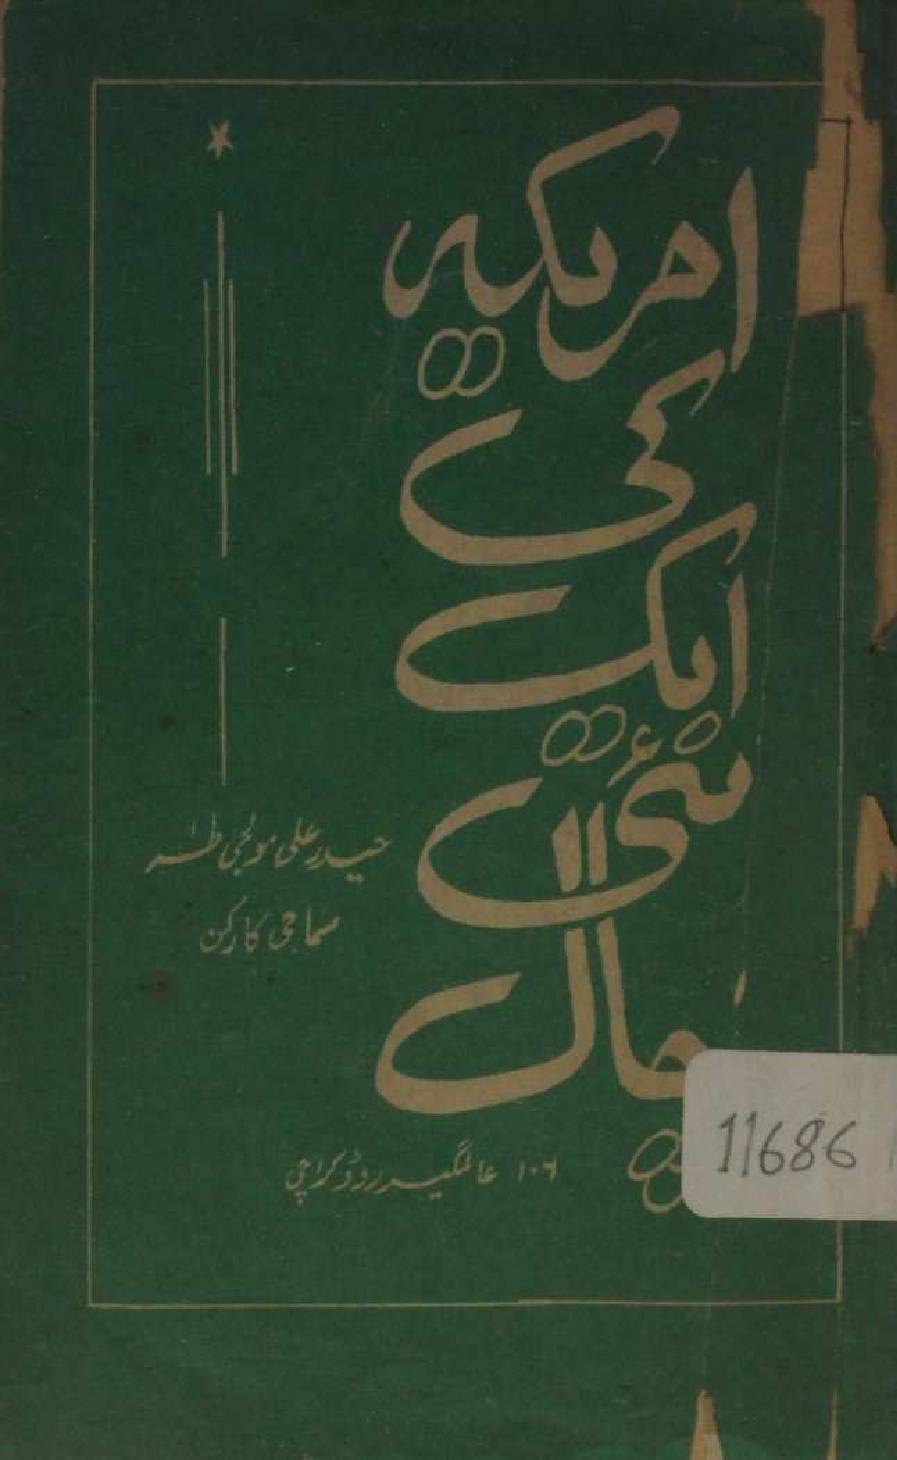 امریکہ
کی
ایک
نئی
چال
حیدر علی مولجی طٰہٰ
سماجی کارکن
۱۰۶ عالمگیر روڈ کراچی
11686